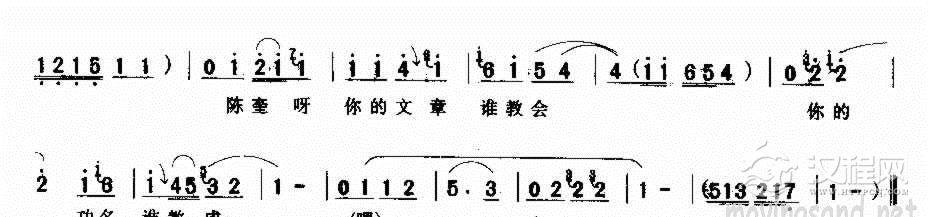 1 2 1 5 1 1 ) | 0 i 2 i i | i i 4 i | 6 i 5 4 | 4 ( i i 6 5 4 ) | 0 2 2 |
陈奎呀 你的文章 谁教会 你的
2 i 6 | i 4 5 3 2 | 1 - | 0 1 1 2 | 5 . 3 | 0 2 2 2 | 1 - | ( 5 1 3 2 1 7 | 1 - ) ‖
功名 谁教成 (嘿)
汉程网
movingsond.net